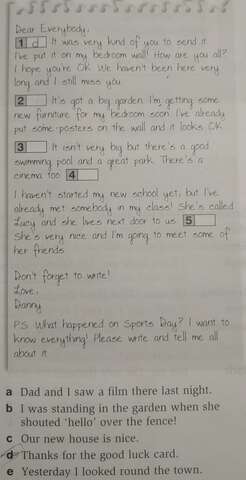 Dear Everybody,
1 d It was very kind of you to send it.
I've put it on my bedroom wall! How are you all?
I hope you're OK. We haven't been here very
long and I still miss you.
2 It's got a big garden. I'm getting some
new furniture for my bedroom soon. I've already
put some posters on the wall and it looks OK.
3 It isn't very big but there's a good
swimming pool and a great park. There's a
cinema too. 4
I haven't started my new school yet, but I've
already met somebody in my class! She's called
Lucy and she lives next door to us. 5
She's very nice and I'm going to meet some of
her friends.
Don't forget to write!
Love,
Danny
P.S. What happened on Sports Day? I want to
know everything! Please write and tell me all
about it.
a Dad and I saw a film there last night.
b I was standing in the garden when she
shouted 'hello' over the fence!
c Our new house is nice.
d Thanks for the good luck card.
e Yesterday I looked round the town.